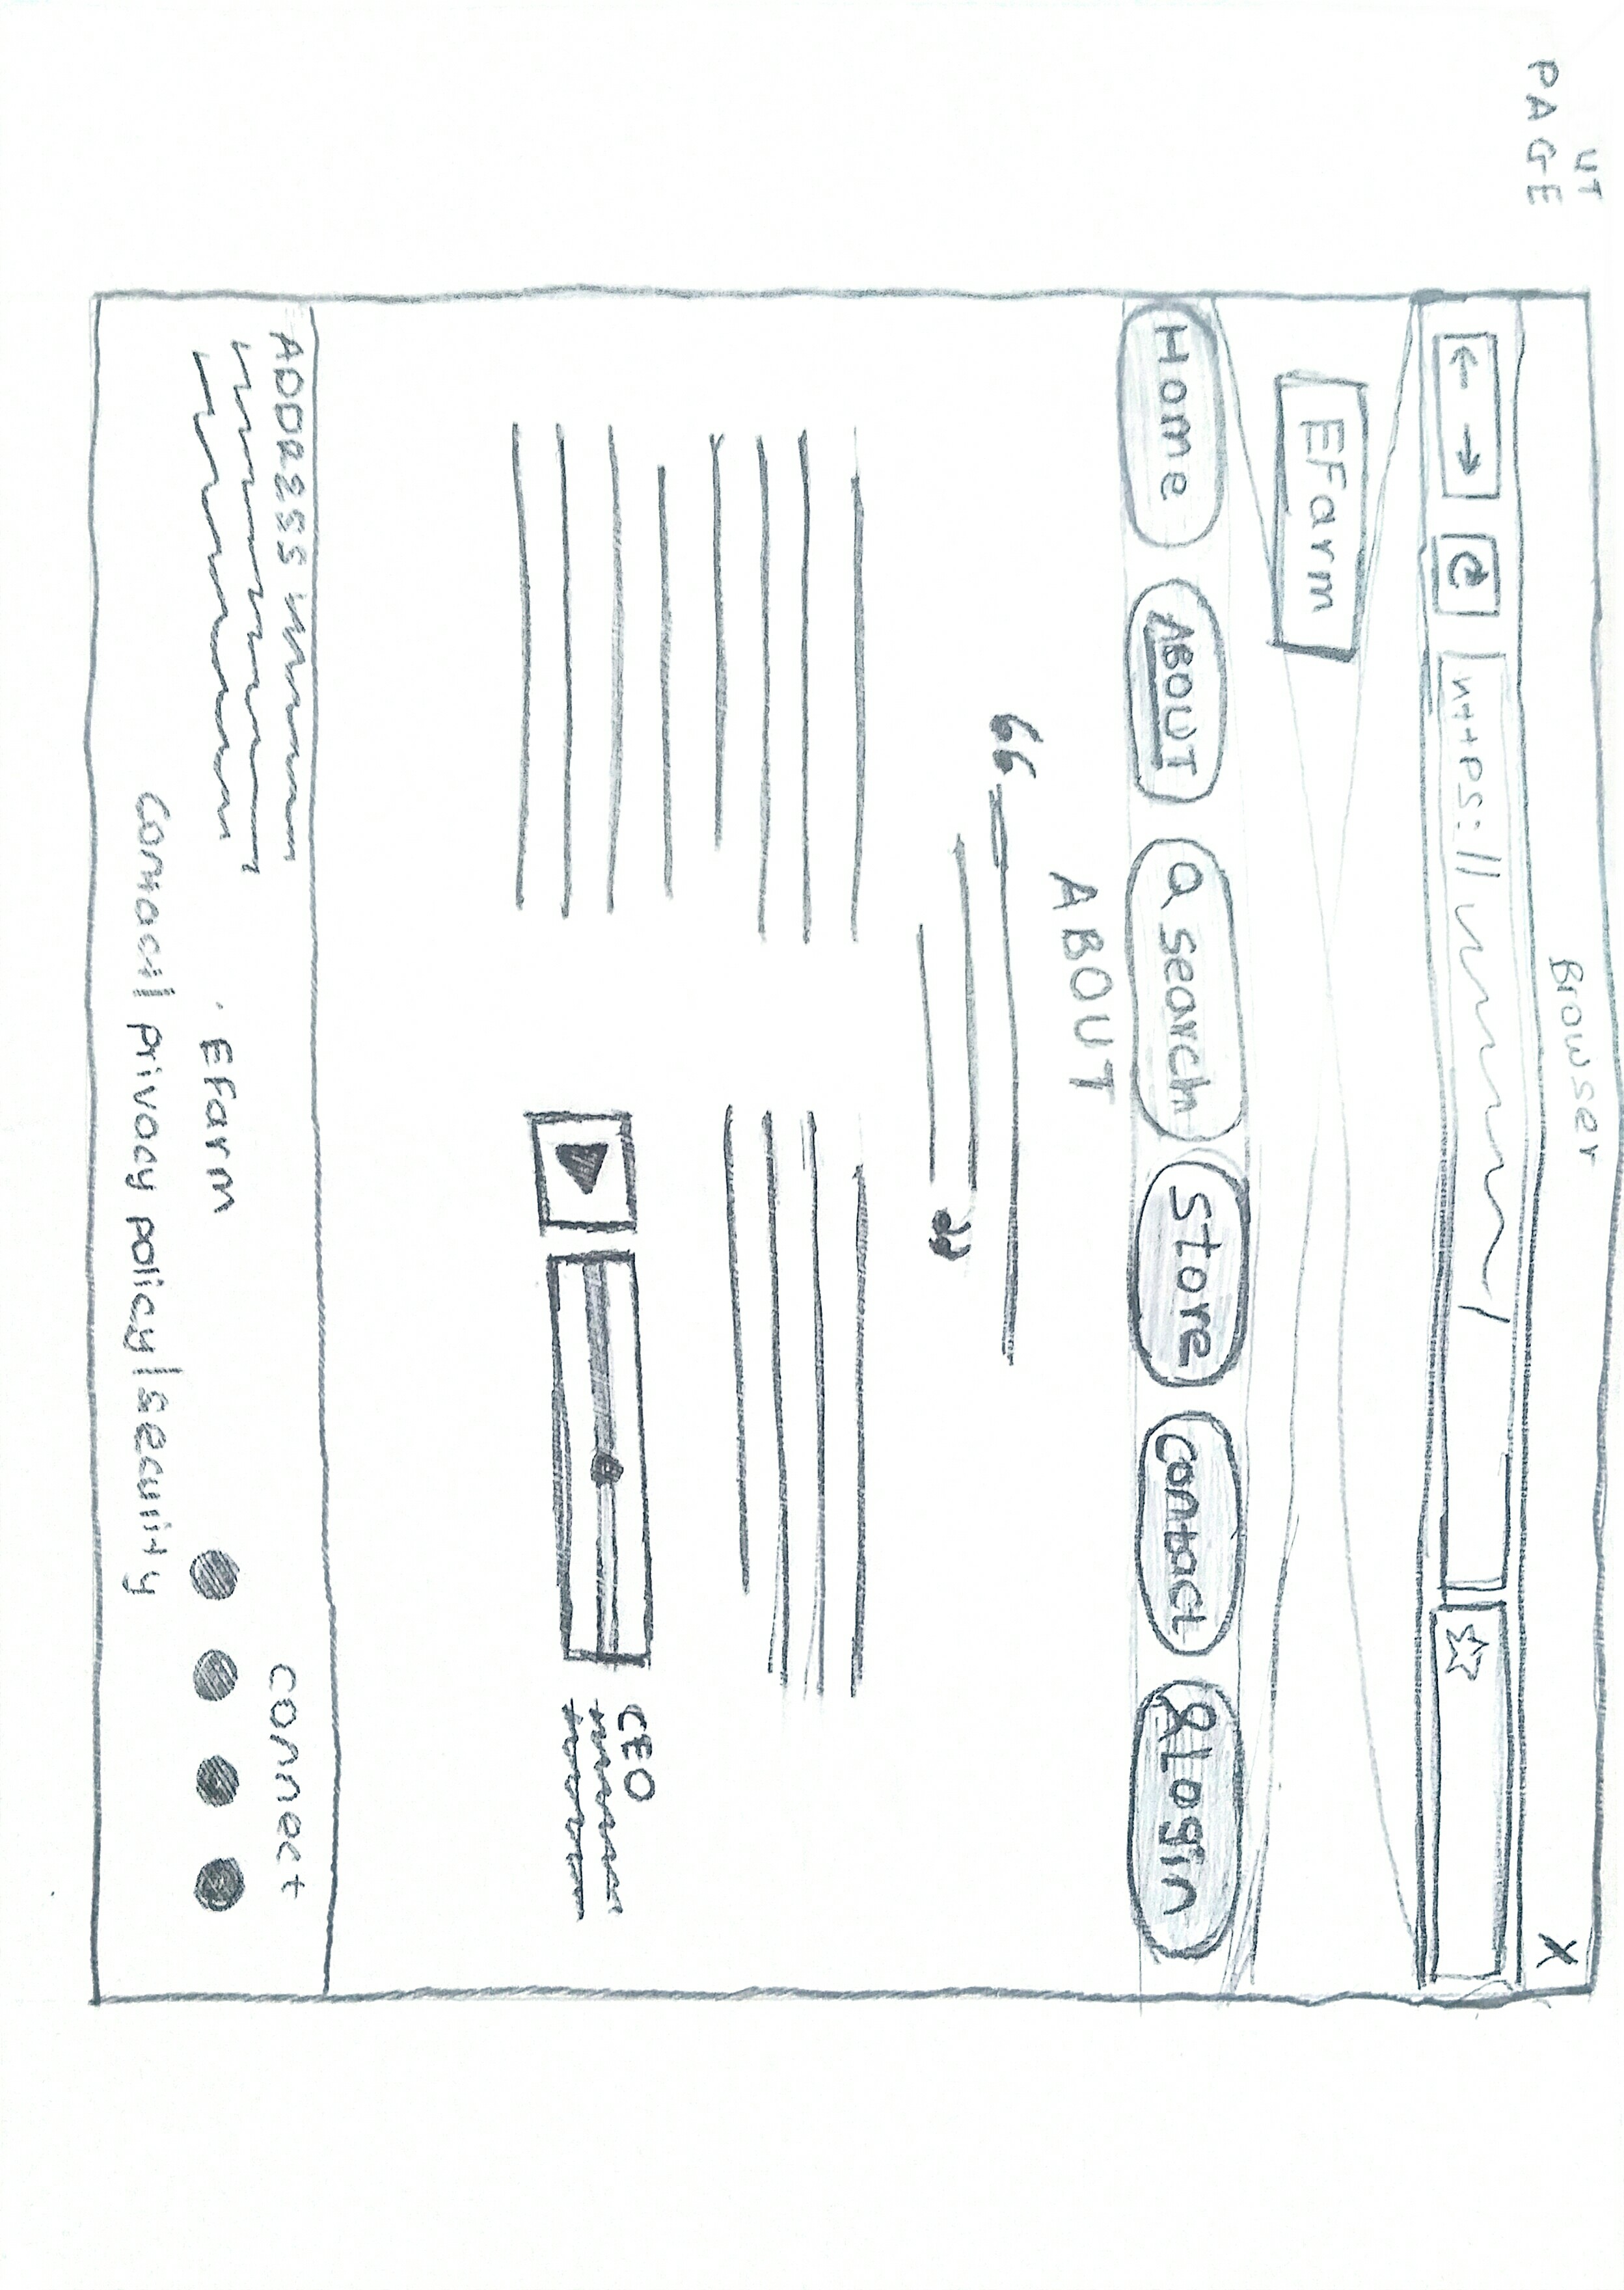 UT
PAGE
Browser X
https://
EFarm
Home ABOUT Search Store Contact Login
ABOUT
“
”
CEO
ADDRESS
CONNECT
EFarm
Contact | Privacy policy | Security